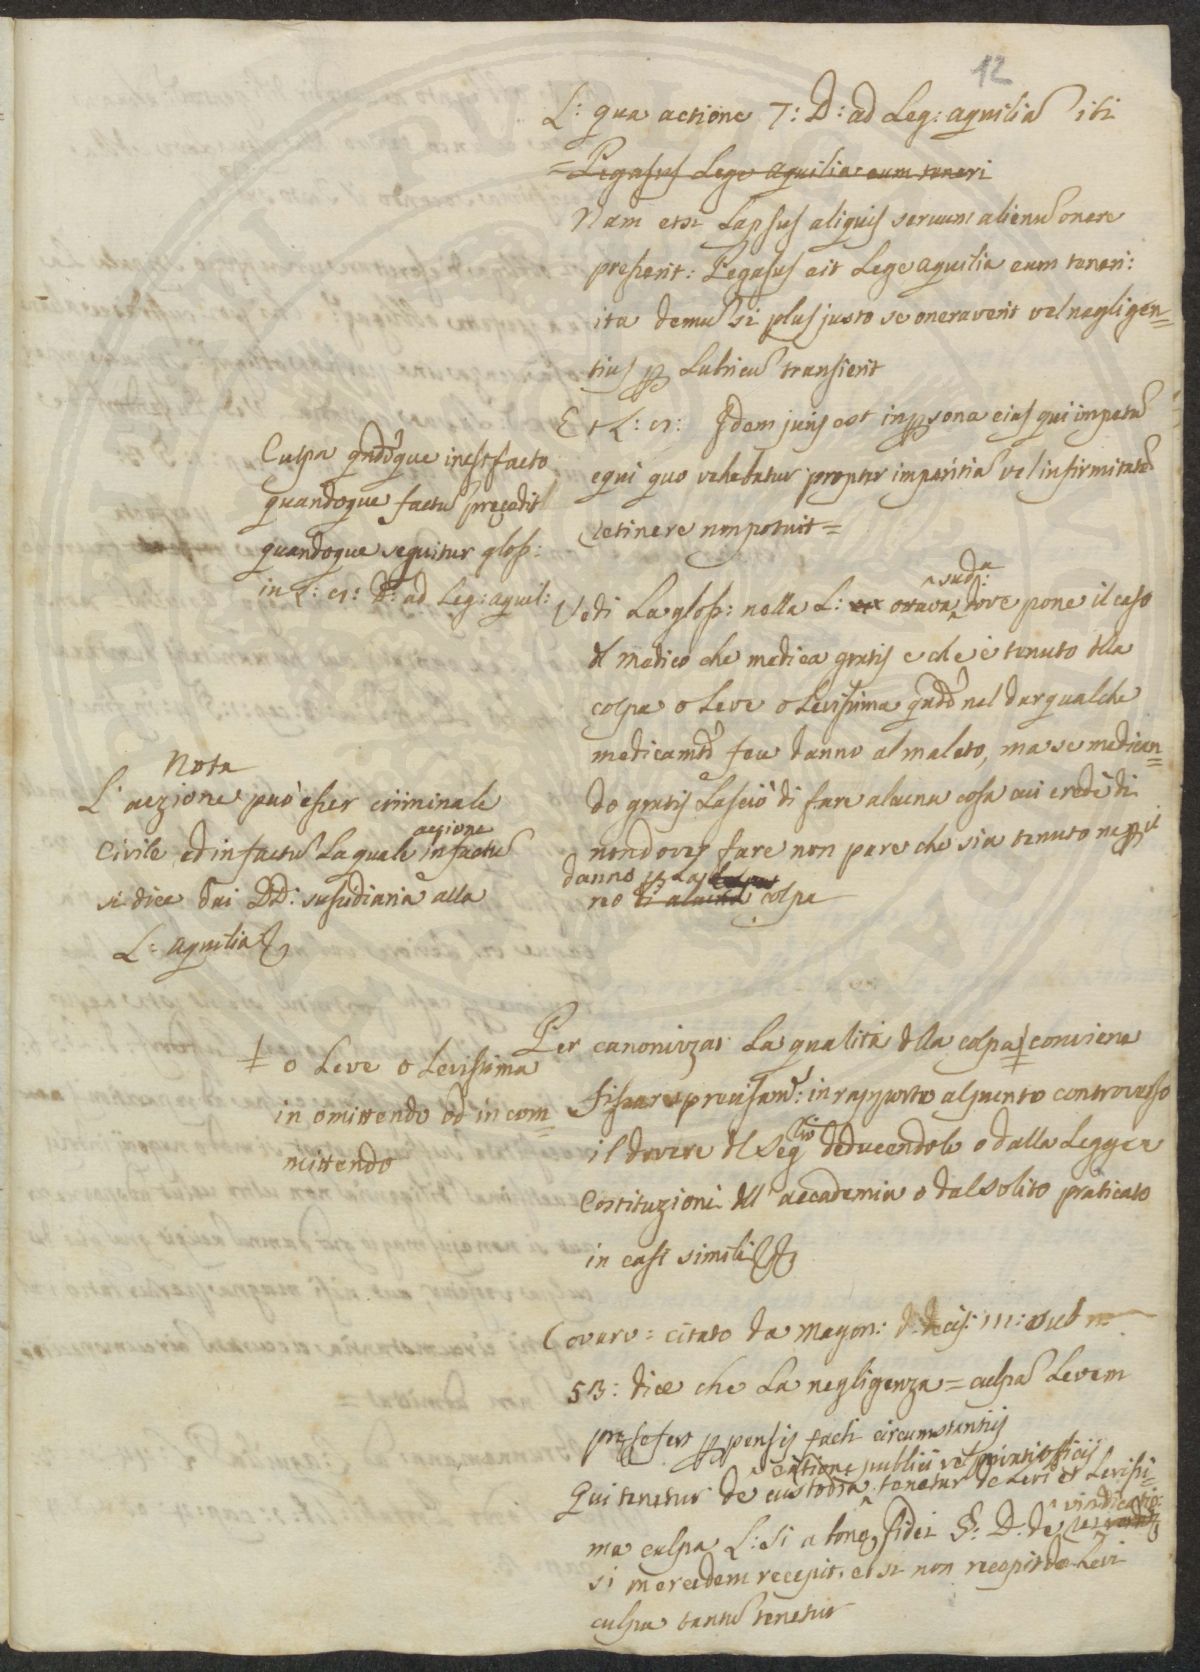 12
L: qua actione 7: D: ad Leg: aquiliā ibi
= Pegasus Lege aquilia eum teneri
Nam etsi Lapsus aliquis servum alienū onere
presserit: Pegasus ait Lege aquilia eum teneri:
ita demū si plus justo se oneraverit vel negligen=
tius p Lubricū transierit
Et L: 8: Idem juris est in psona eius qui impetū
equi quo vehebatur propter imperitiā vel infirmitatē
retinere non potuit=
Culpa qndoque inest facto
quandoque factū precedit
quandoque sequitur gloss:
in L: 8: D: ad Leg: aquil:
Vedi La gloss: nella L: ottava sudª: dove pone il caso
dl medico che medica gratis e che è tenuto dlla
colpa o Leve o Levissima qndo nel dar qualche
medicamto fece danno al malato, ma se medican=
do gratis Lasciò di fare alcuna cosa cui credè di
non dover fare non pare che sia tenuto ne p il
danno p La colpa
ne di alcuna colpa
Nota
L' aczione può esser criminale
Civile ed in factū La quale aczione in factū
si dice dai DD: susidiaria alla
L: aquilia
Per canonizar La qualità dlla colpa ‡ conviene
fissare precisamte: in rapporto al punto controverso
il dovere dl Segrio deducendolo o dalla Legge e
Costituzioni dll' accademia o dal solito praticato
in casi simili
‡ o Leve o Levissima
in omittendo od in com=
mittendo
Covaru: citato da Magon: d: decis: 111: sub n:
53: dice che La negligenza = culpā Levem
presefert ppensis facti circumstantiis
Qui tenetur de custodia ratione publici vel privati officij tenetur de Levi et Levissi=
ma culpa L: si a bonę fidei §: D: de rei vindicatio:
si mercedem recepit, et si non recepit de Levi
culpa tantū tenetur